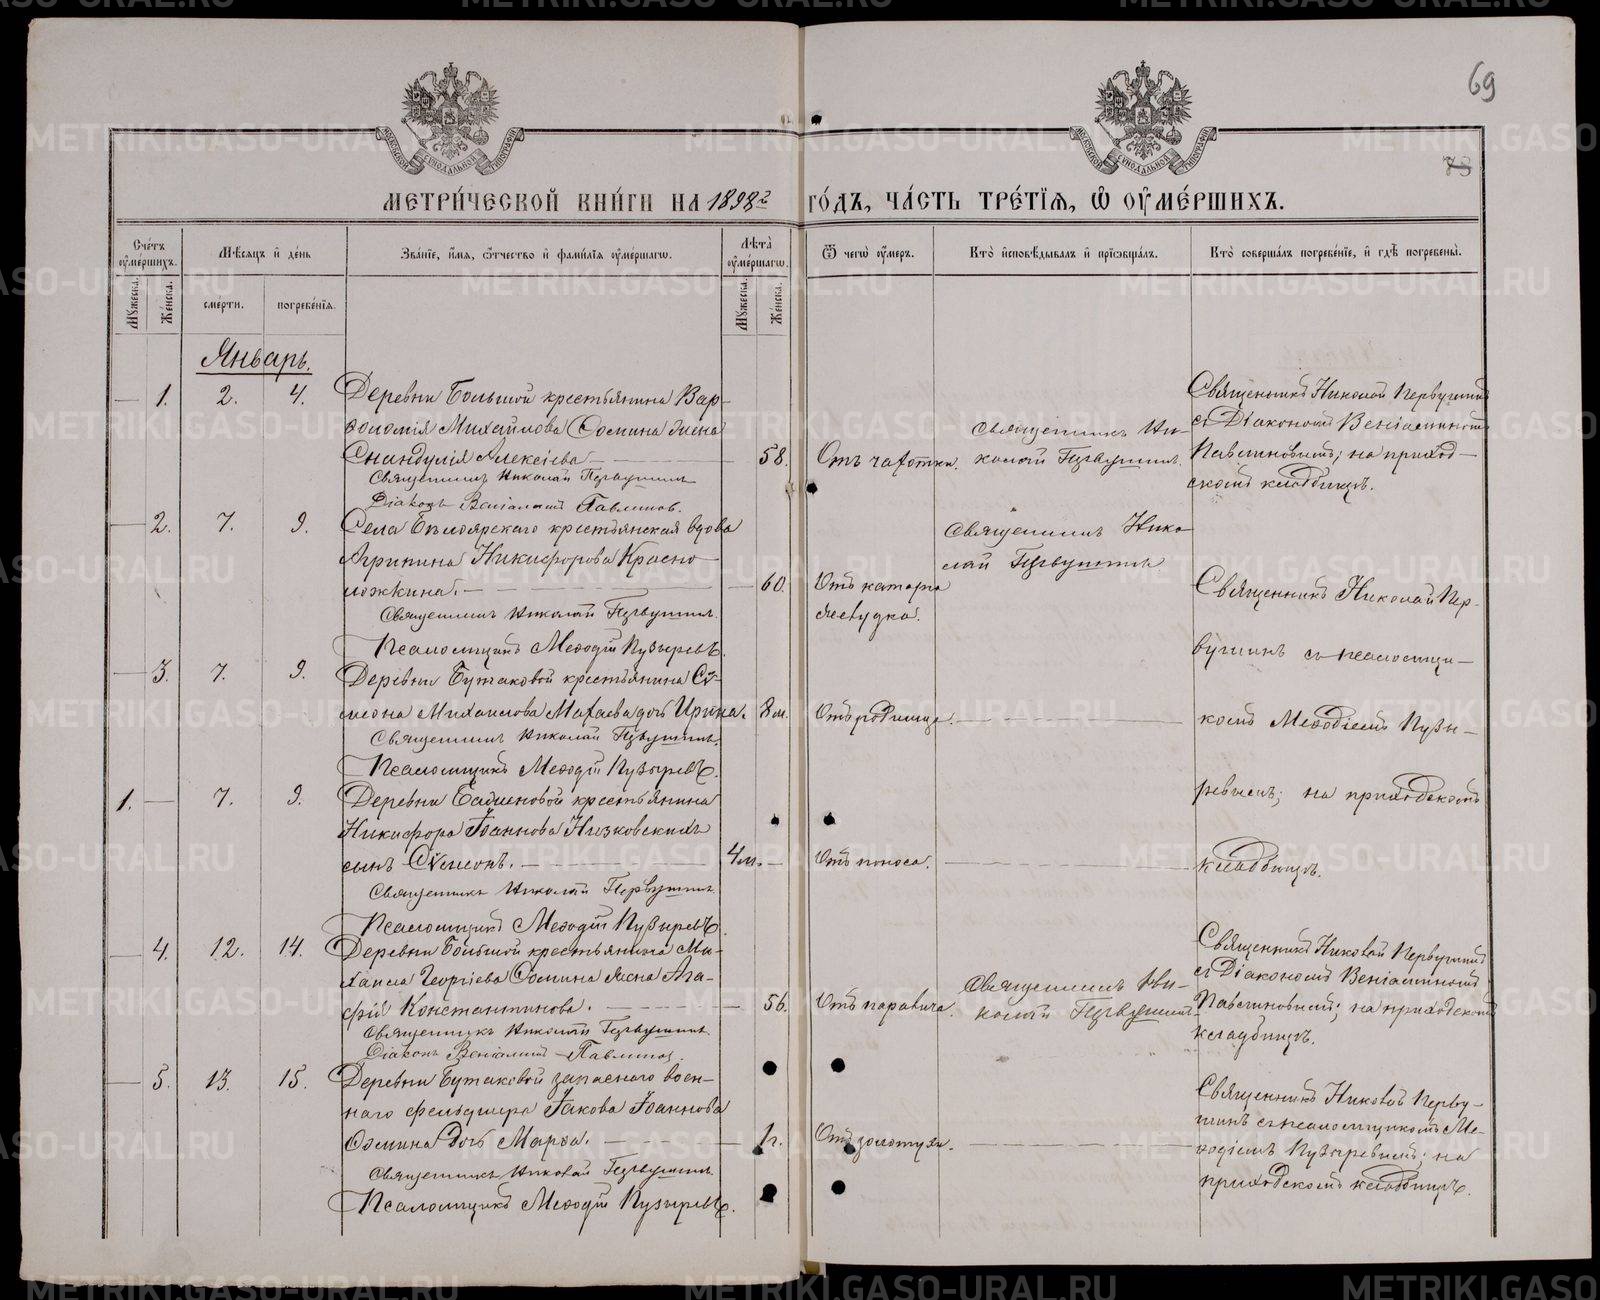 69
73
МЕТРИ́ЧЕСКОЙ КНИ́ГИ НА 1898 ГО́ДЪ, ЧА́СТЬ ТРЕ́ТЇѦ, Ѡ ОУМЕ́РШИХЪ.
Сче́тъ оуме́ршихъ.
Мꙋжеска.
Же́нска.
Мѣ́сѧцъ и де́нь
сме́рти.
погребе́нїѧ.
Зва́нїе, и́мѧ, ѻ́тчество и фами́лїѧ оуме́ршагѡ.
Лѣта̀ оуме́ршагѡ.
Мꙋжеска.
Же́нска.
Ѿ чегѡ̀ оу́меръ.
Кто̀ и҆сповѣ́дывалъ и прїѡбща́лъ.
Кто̀ соверша́лъ погребе́нїе, и гдѣ̀ погребены̀.
Январь.
— 1. 2. 4.
Деревни Большой крестьянина Вар-
ѳоломія Михайлова Сомина жена
Сканду́лія Алексіева — 58.
Священникъ Николай Первушинъ
Діаконъ Веніаминъ Павлиновъ.
Отъ чахотки.
Священникъ Ни-
колай Первушинъ.
Священникъ Николай Первушинъ
съ Діакономъ Веніаминомъ
Павлиновымъ; на приход-
скомъ кладбищѣ.
— 2. 7. 9.
Села Бѣлоярскаго крестьянская вдова
Агрипина Никифорова Красно-
ложкина. — 60.
Священникъ Николай Первушинъ.
Псаломщикъ Меѳодій Пузыревъ.
Отъ катарра
желудка.
Священникъ Нико-
лай Первушинъ
Священникъ Николай Пер-
вушинъ съ псаломщи-
комъ Меѳодіемъ Пузы-
ревымъ; на приходскомъ
кладбищѣ.
— 3. 7. 9.
Деревни Бутаковой крестьянина Сѵ-
меона Михаилова Махаева дочь Ирина. 8 м.
Священникъ Николай Первушинъ.
Псаломщикъ Меѳодій Пузыревъ.
Отъ родимца. —
1. — 7. 9.
Деревни Гадиеновой крестьянина
Никифора Іоаннова Низковскихъ
сынъ Сѵмеонъ. — 4 м. —
Священникъ Николай Первушинъ
Псаломщикъ Меѳодій Пузыревъ.
Отъ поноса. —
— 4. 12. 14.
Деревни Большой крестьянина Ми-
хаила Георгіева Сомина жена Ага-
фія Константинова. — 56.
Священникъ Николай Первушинъ.
Діаконъ Веніаминъ Павлиновъ.
Отъ паралича.
Священникъ Ни-
колай Первушинъ
Священникъ Николай Первушинъ
съ Діакономъ Веніаминомъ
Павлиновымъ; на приходскомъ
кладбищѣ.
— 5. 13. 15.
Деревни Бутаковой запаснаго воен-
наго фельдшера Іакова Іоаннова
Сомина дочь Марѳа. — 1 г.
Священникъ Николай Первушинъ
Псаломщикъ Меѳодій Пузыревъ.
Отъ золотухи. —
Священникъ Николай Перву-
шинъ съ псаломщикомъ Ме-
ѳодіемъ Пузыревымъ; на
приходскомъ кладбищѣ.
METRIKI.GASO-URAL.RU